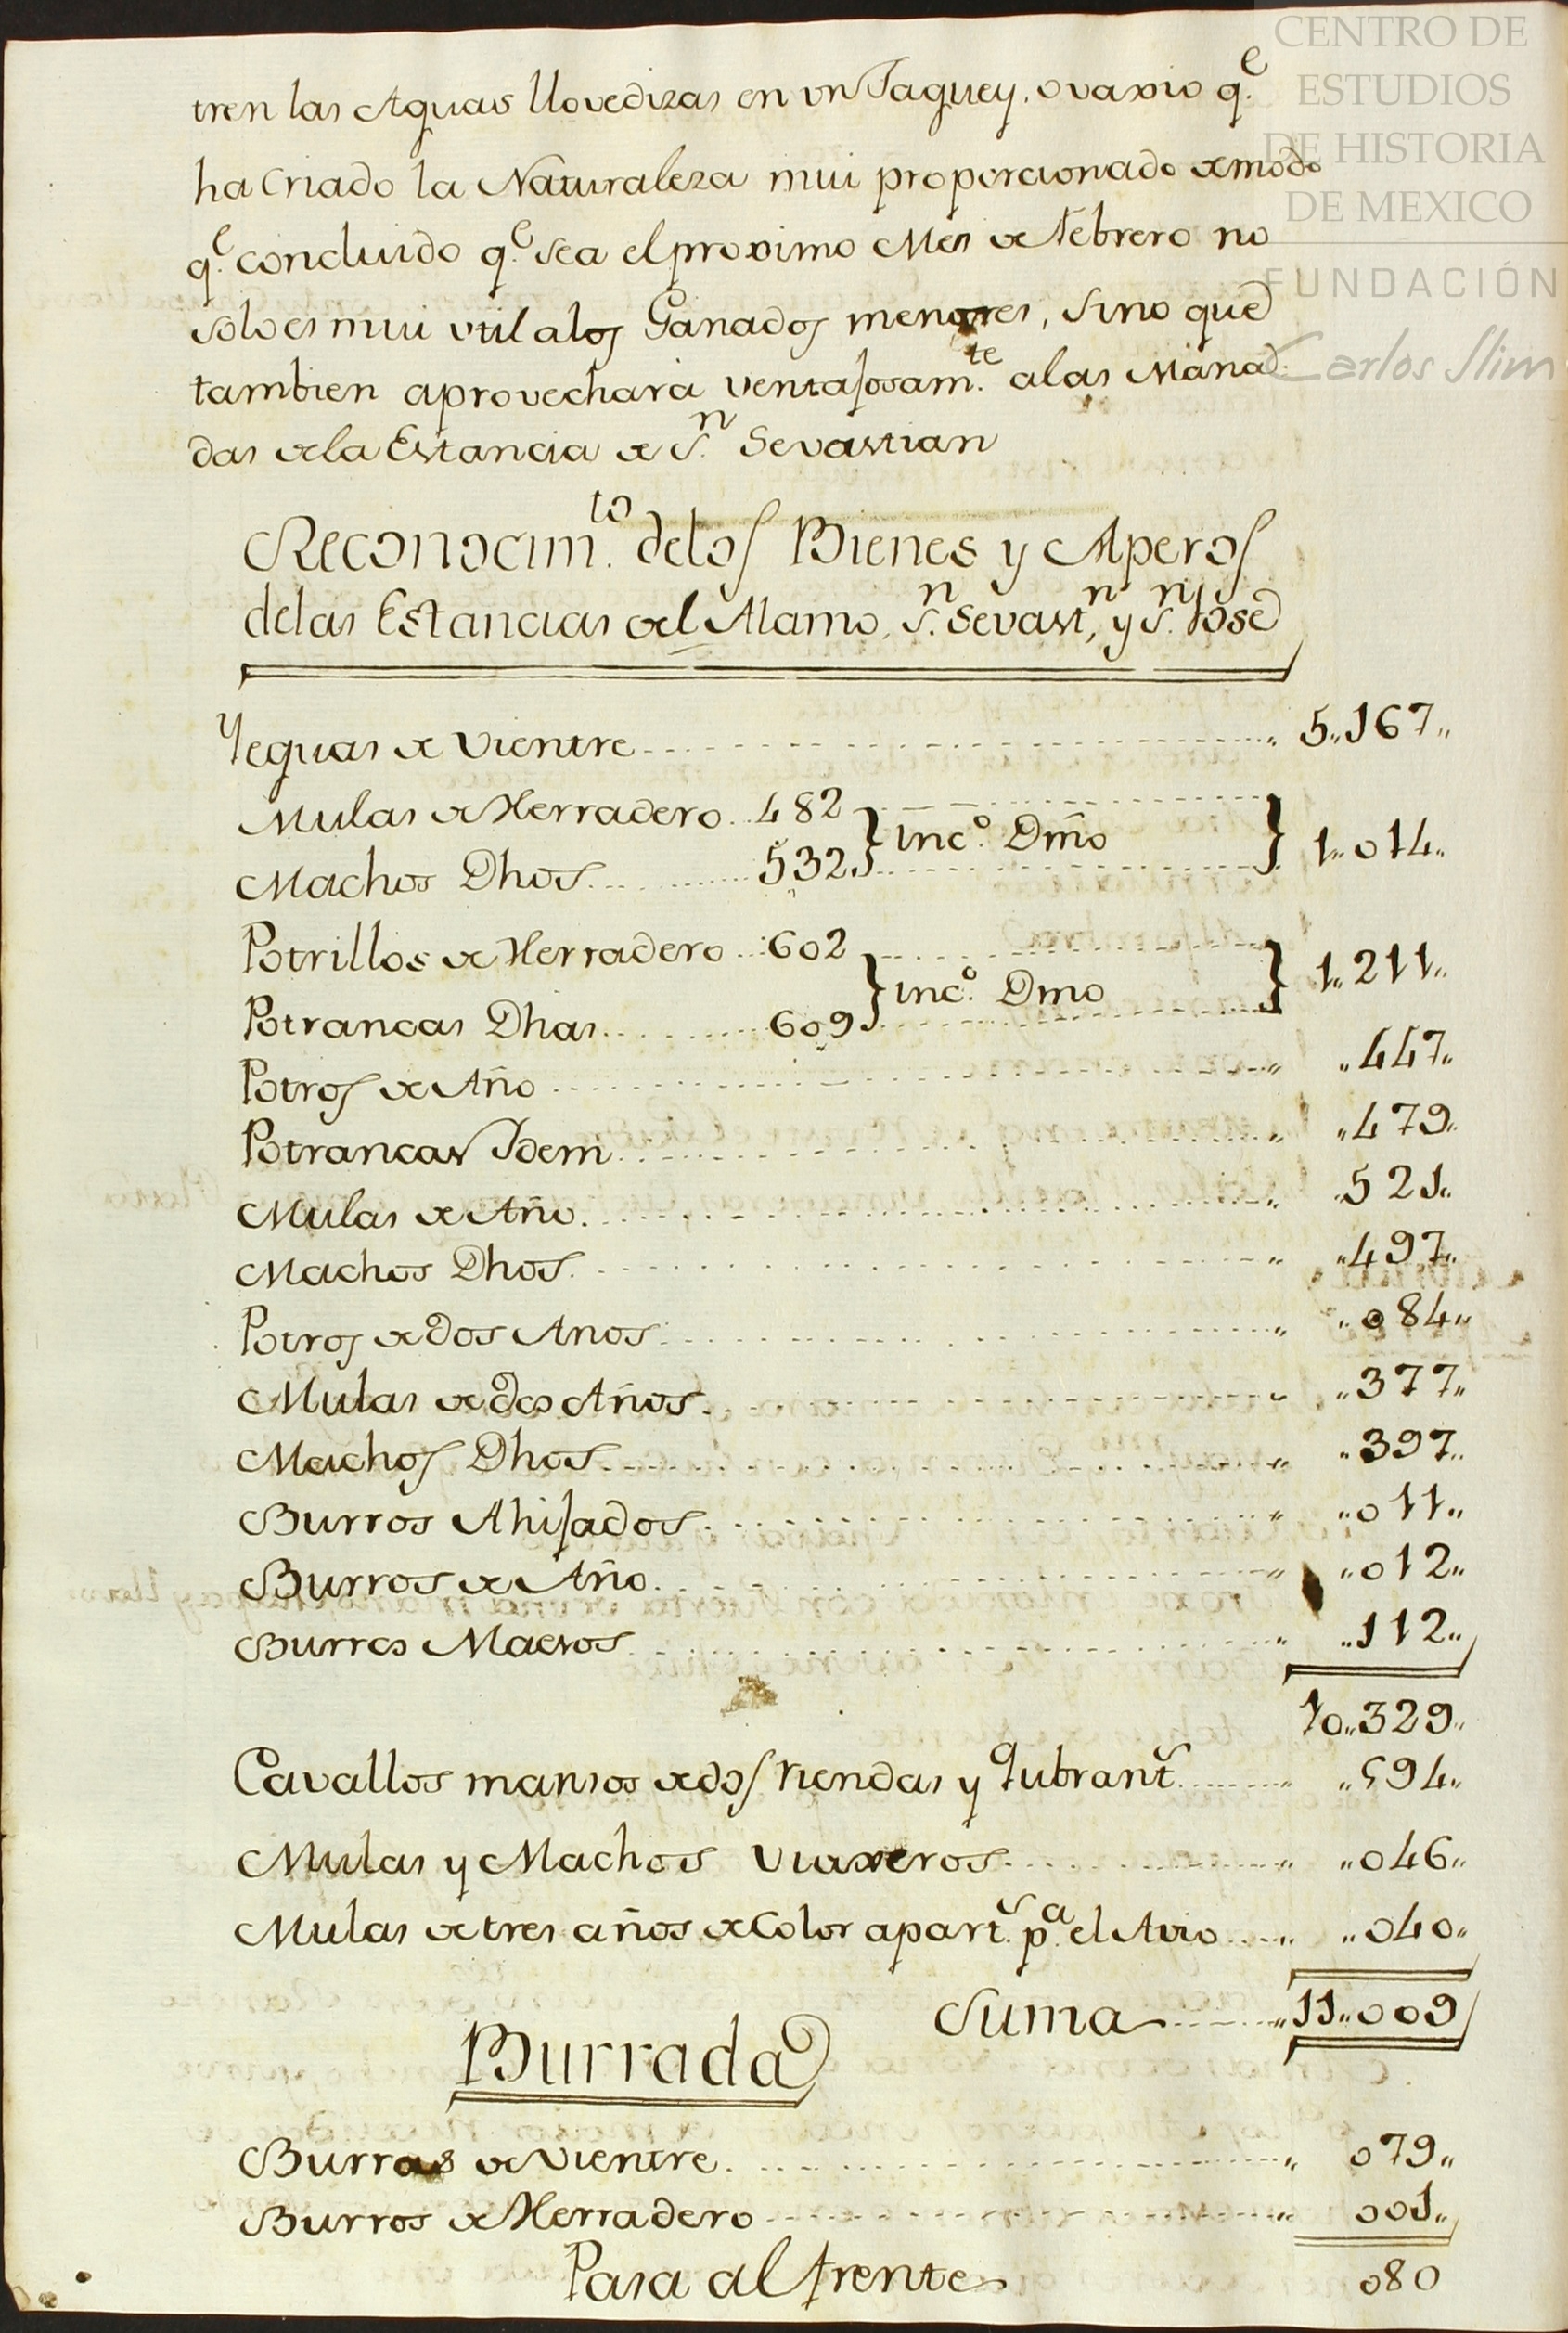 CENTRO DE
ESTUDIOS
DE HISTORIA
DE MEXICO
FUNDACIÓN
Carlos Slim
tren las Aguas llovedizas en un Jaguey, o vaxio q.e
ha criado la Naturaleza mui proporcionado de modo
q.e concluido q.e sea el proximo Mes de Febrero no
solo es mui util alos Ganados menores, sino que
tambien aprovechará ventajosam.te alas Mana-
das de la Estancia de S.n Sevastian
Reconocim.to delos Bienes y Aperos
delas Estancias del Alamo, S.n Sevast.n, y S.n José
Yeguas de Vientre 5,,167,,
Mulas de Herradero 482 } inc.o Dmõ } 1,,014,,
Machos Dhos 532
Potrillos de Herradero 602 } inc.o Dmo } 1,,211,,
Potrancas Dhas 609
Potros de Año ,,447,,
Potrancas Idem ,,479,,
Mulas de Año ,,521,,
Machos Dhos ,,497,,
Potros de dos Anos ,,084,,
Mulas de dos Años ,,377,,
Machos Dhos ,,397,,
Burros Ahijados ,,011,,
Burros de Año ,,012,,
Burros Maesos ,,112,,
10,,329,,
Cavallos mansos de dos riendas y ,,594,,
Mulas y Machos Viaxeros ,,046,,
Mulas de tres años de Color apart.s p.a el Avio ,,040,,
Suma ,,11,,009
Burrada
Burras de Vientre 079,,
Burros de Herradero 001,,
Pasa al frente 080